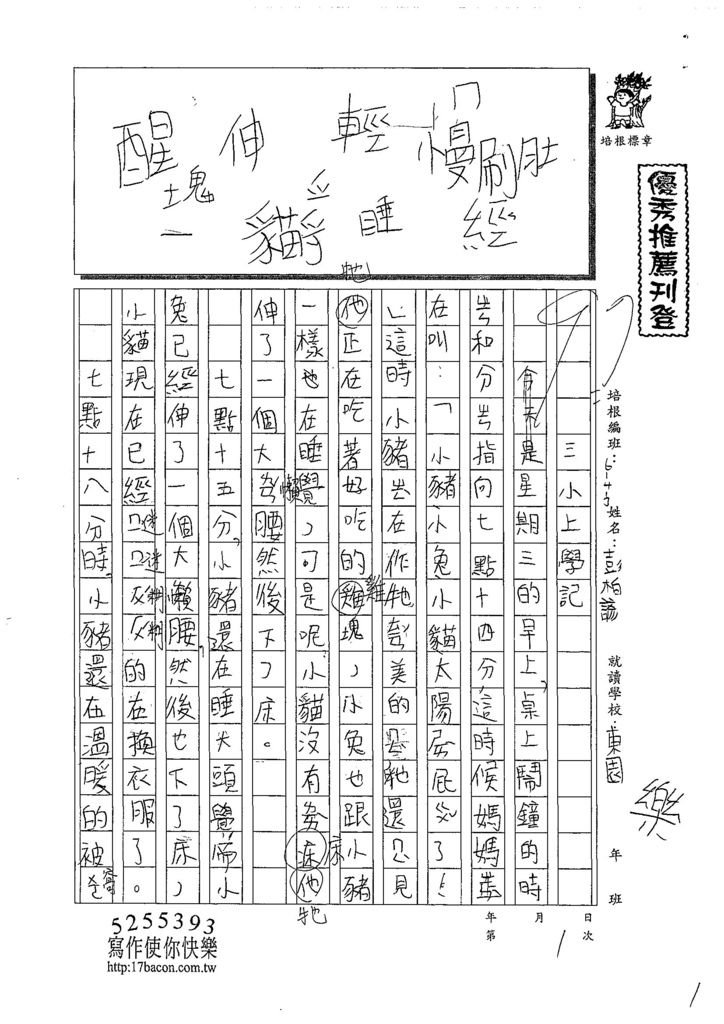 醒 伸 輕 慢 刷 肚
塊
一 貓 睡 經
培根標章
優秀推薦刊登
97
培根編班：
姓名：彭柏諺
就讀學校：東園
年 班
樂
三小上學記
今天是星期三的早上，桌上鬧鐘的時
ㄕ和分ㄕ指向七點十四分這時候媽媽
在叫：「小豬小兔小貓太陽 屁 了！
」這時小豬 在作牠 美的 還 見
他正在吃著好吃的雞塊，小兔也跟小豬
一樣也在睡覺，可是呢小貓沒有 床他
伸了一個大 懶腰然後下了床。
七點十五分，小豬還在睡大頭覺 小
兔已經伸了一個大懶腰，然後也下了床，
小貓現在已經迷迷糊糊的在換衣服了。
七點十八分時，小豬還在溫暖的被窩
牠
雞
床
牠
年 月 日
第 1 次
5255393
寫作使你快樂
http:17bacon.com.tw
1